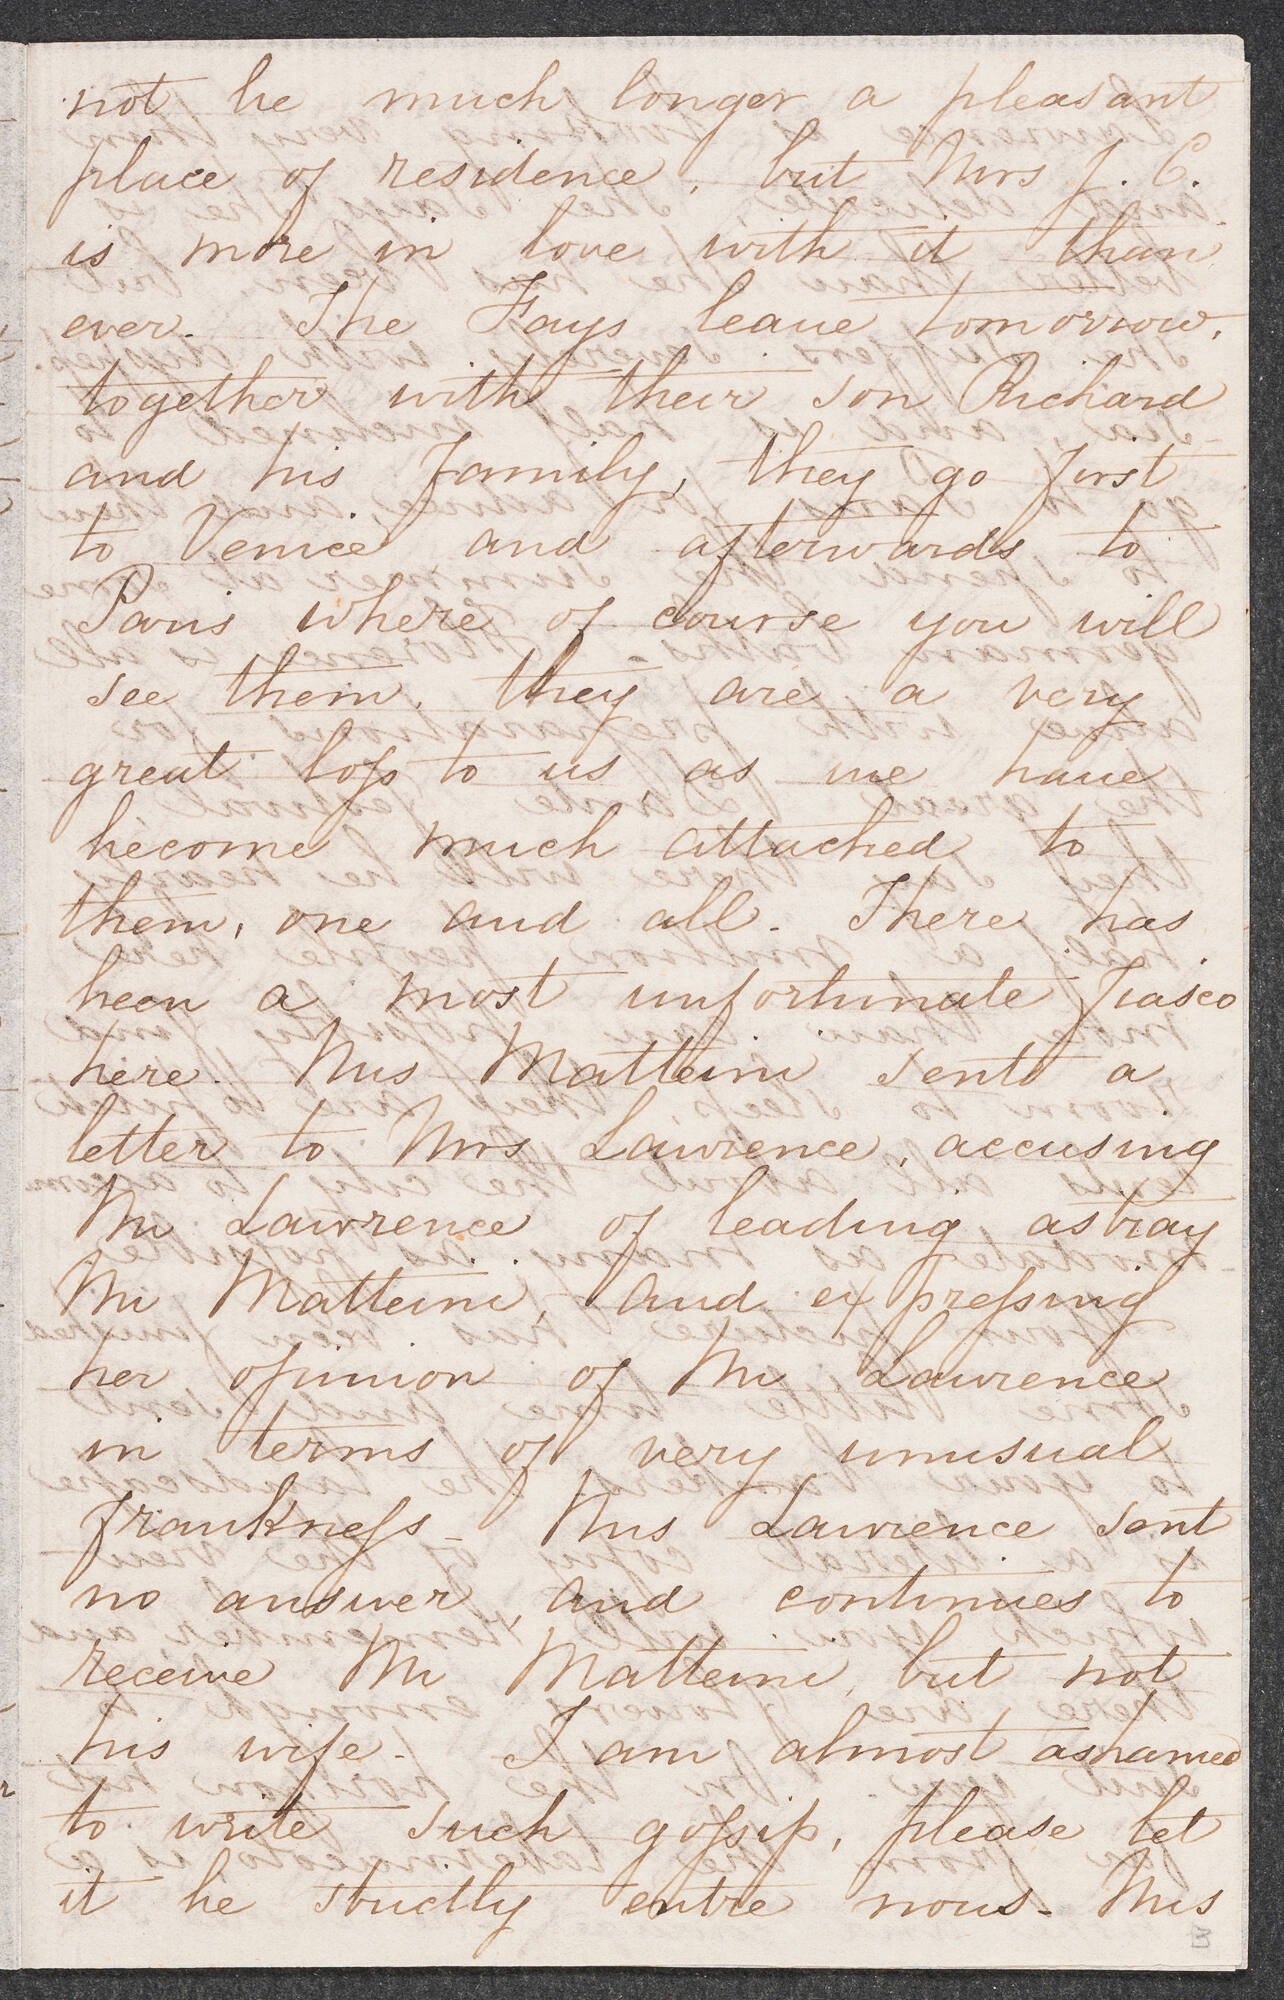 not be much longer a pleasant
place of residence, but Mrs J. C.
is more in love with it than
ever. The Fays leave tomorrow,
together with their son Richard
and his family, they go first
to Venice and afterwards to
Paris where of course you will
see them. they are a very
great loss to us, as we have
become much attached to
them, one and all. There has
been a most unfortunate fiasco
here. Mrs Matteini sent a
letter to Mrs Lawrence, accusing
Mr Lawrence of leading astray
Mr Matteini, and expressing
her opinion of Mr Lawrence
in terms of very unusual
frankness – Mrs Lawrence sent
no answer, and continues to
receive Mr Matteini, but not
his wife. I am almost ashamed
to write such gossip, please let
it be strictly entre nous. Mrs
3